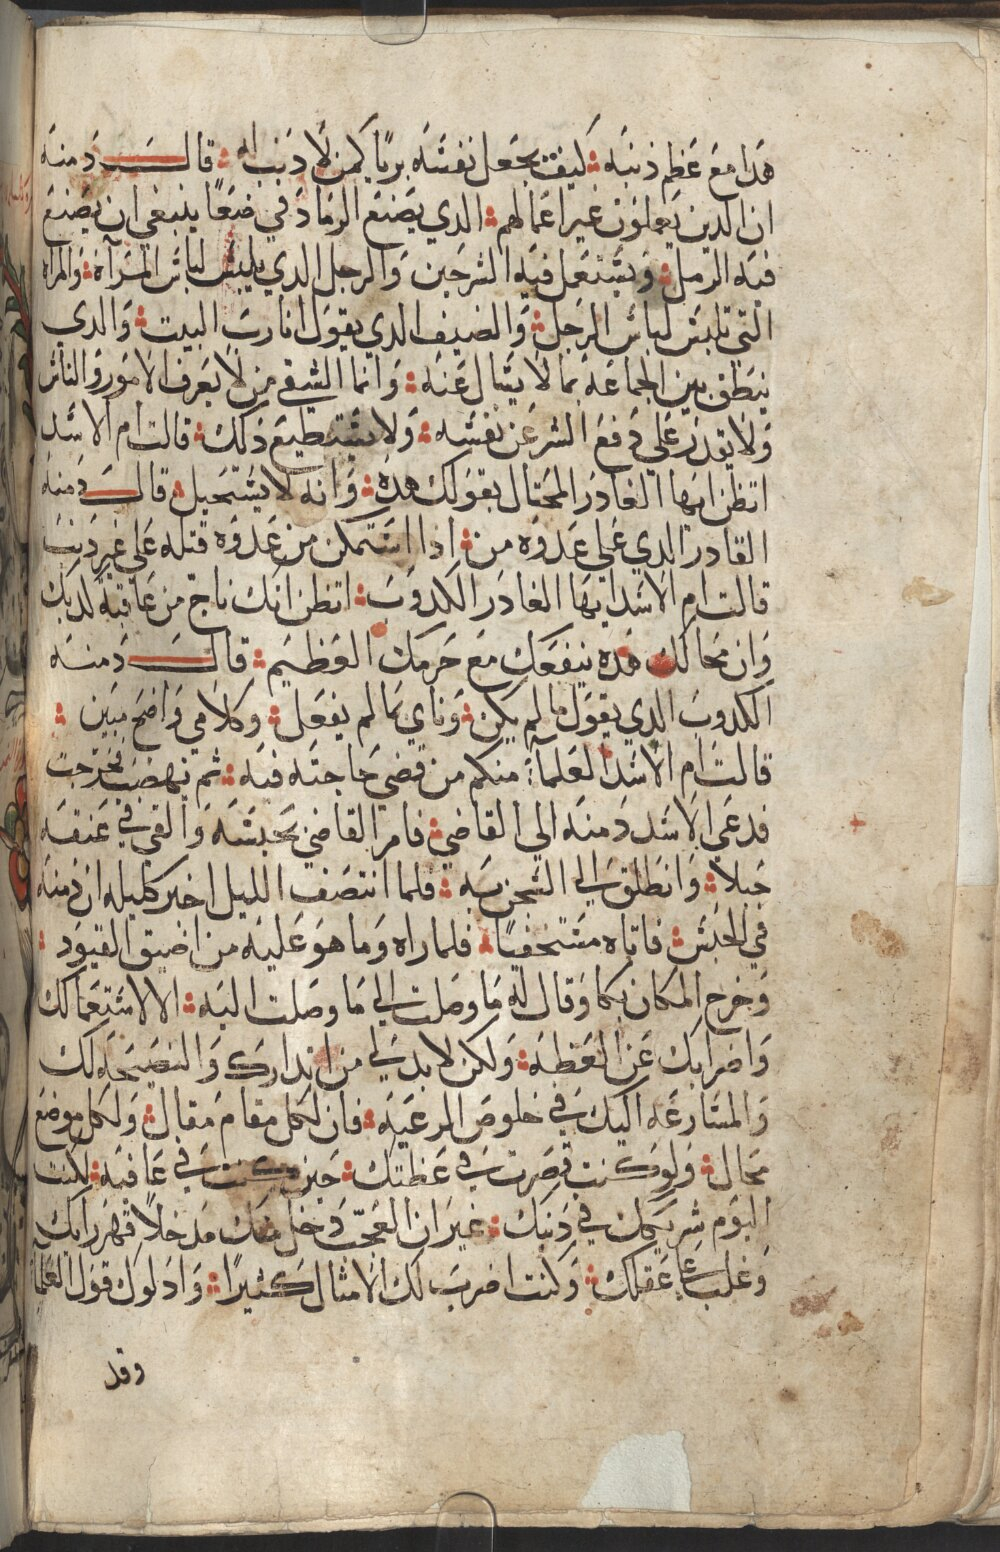 هذا مع عظم ذنبه كيف يجعل نفسه بريًا كمن لا ذنب له قال دمنه
ان الذين يعملون غير اعمالهم الذي يضع الرماد في ضعًا ينبغي ان يصنع
فيه الرمل ويستعمل فيه السرجين والرجل الذي يلبس لباس المرآة والمراه
التي تلبس لباس الرجل والضيف الذي يقول انا رب البيت والذي
ينطق بين الجماعه بما لا يسال عنه وانما الشقي من لا يعرف الامور والناس
ولا يقدر علي دفع الشر عن نفسه ولا يستطيع ذلك قالت ام الاسد
اتظن ايها الغادر المحتال بقولك هذه وانه لا يستحيل قال دمنه
الغادر الذي علي عدوه من اذا استمكن من عدوه قتله علي غير ذنب
قالت ام الاسد ايها الغادر الكدوب اتظن انك ناج من عاقبة كذبك
وان محالك هذه ينفعك مع جرمك العظيم قال دمنه
الكدوب الذي يقول ما لم يكن وياي بما لم يفعل وكلامي واضح مبين
قالت ام الاسد العلمآ منكم من قضي حاجته فيه ثم نهضت فخرجت
فدعي الاسد دمنه الي القاضي فامر القاضي بحبسه والقي في عنقه
حبلا وانطلق الي السجن به فلما انتصف الليل اخبر كليله ان دمنه
في الحبس فاتاه مستخفيًا فلما راه وما هو عليه من اضيق القيود
وخرج المكان بكا وقال له ما وصلت الي ما وصلت اليه الا لاستعمالك
واضرابك عن العظه ولكن لا بد لي من انذارك والنصيحه لك
والمسارعه اليك في خلوص الرعيه فان لكل مقام مقال ولكل موضع
مجال ولو كنت قصرت في عظتك حين كنت في عافيه لكنت
اليوم شريكك في ذنبك غير ان العجب دخل منك مدخلاً قهر رايك
وغلب علي عقلك وكنت اضرب لك الامثال كثيرًا واذ لوك قول العلما
وقد